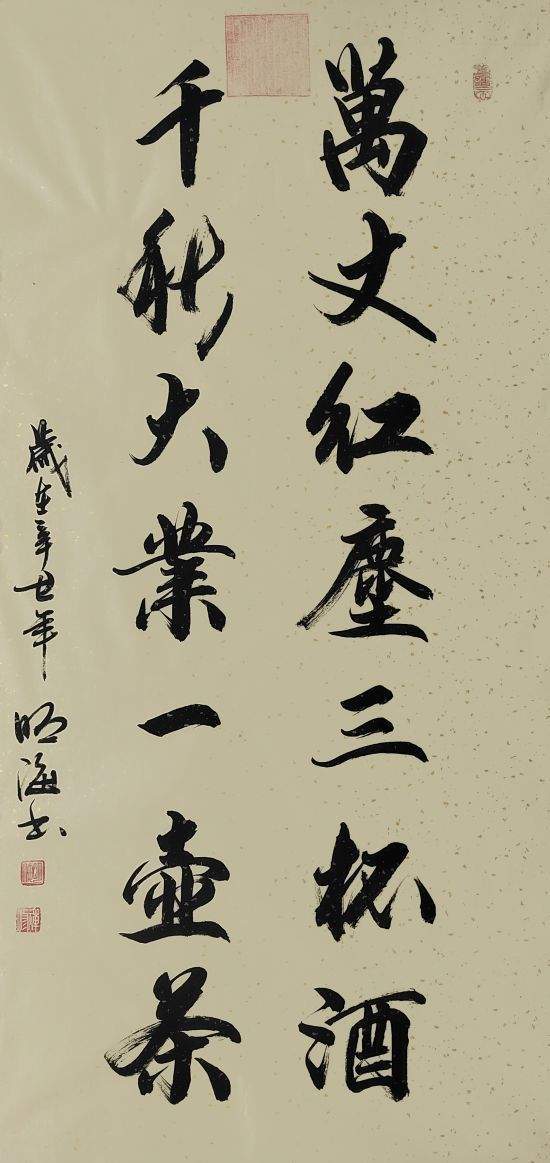 萬丈紅塵三杯酒
千秋大業一壺茶
歲在辛丑年
明海书